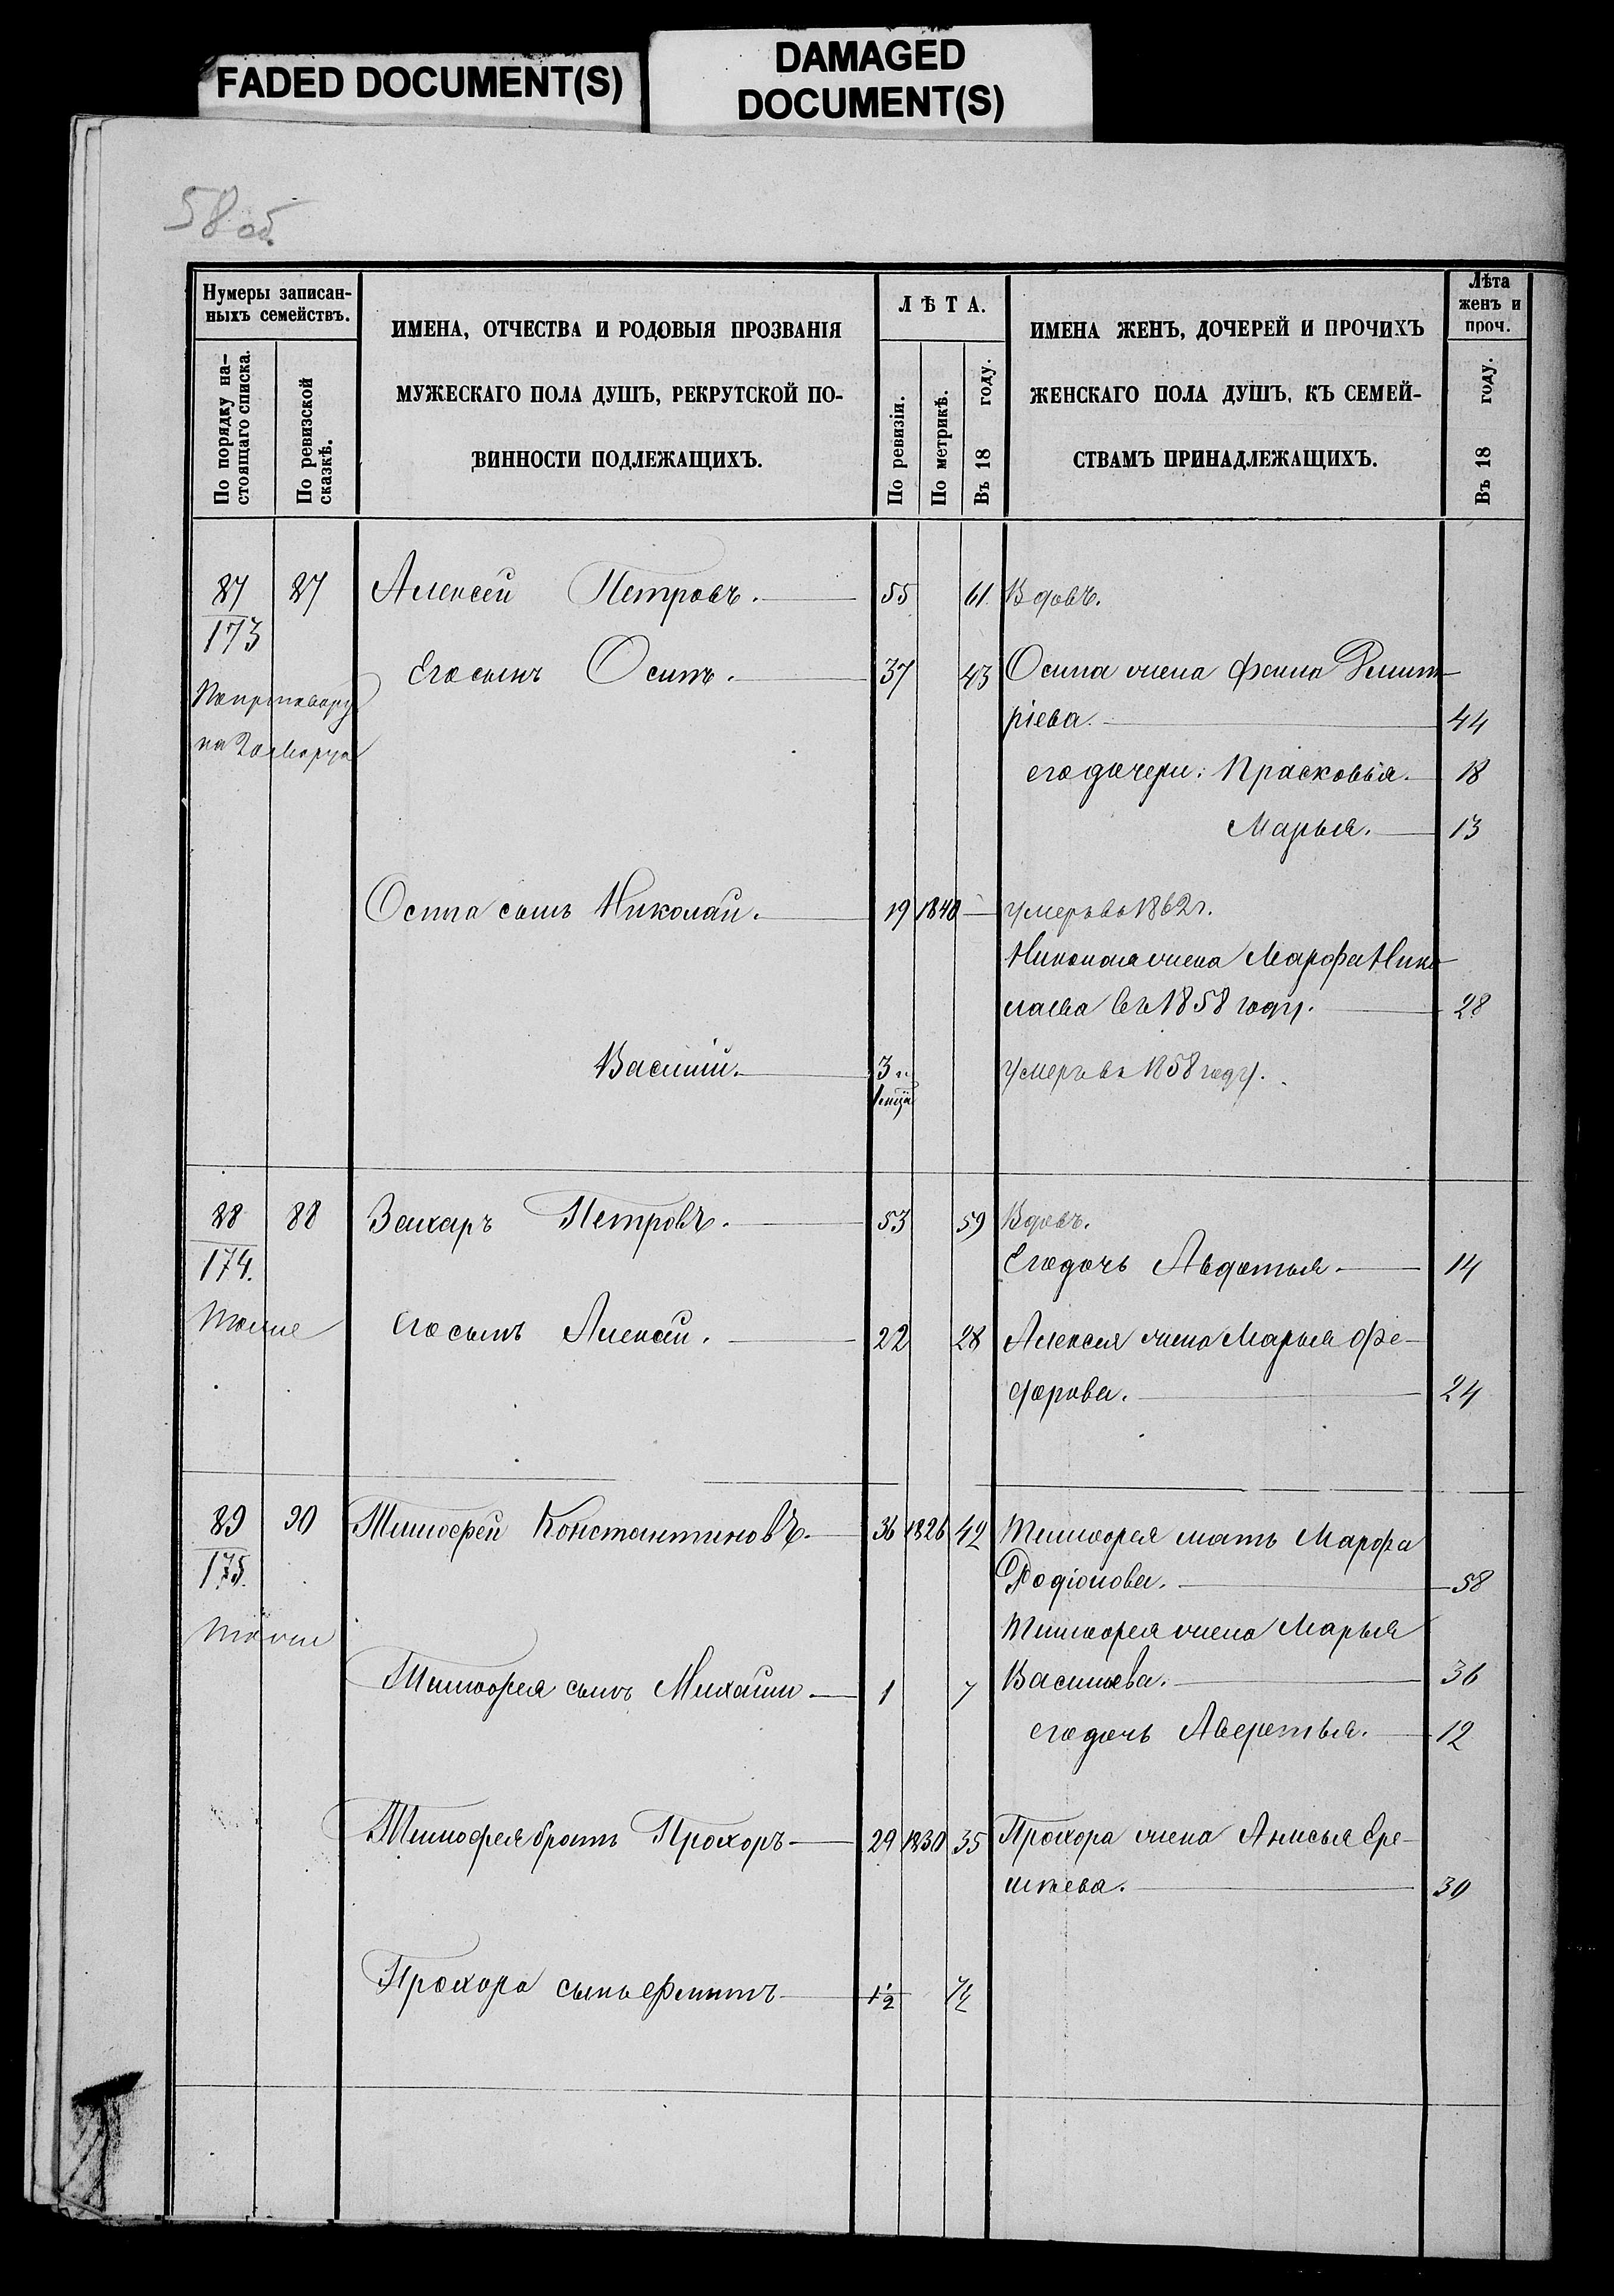 FADED DOCUMENT(S)
DAMAGED
DOCUMENT(S)
58 об.
Нумеры записан-
ныхъ семействъ.
По порядку на-
стоящаго списка.
По ревизской
сказкѣ.
ИМЕНА, ОТЧЕСТВА И РОДОВЫЯ ПРОЗВАНІЯ
МУЖЕСКАГО ПОЛА ДУШЪ, РЕКРУТСКОЙ ПО-
ВИННОСТИ ПОДЛЕЖАЩИХЪ.
ЛѢТА.
По ревизіи.
По метрикѣ.
Въ 18 году.
ИМЕНА ЖЕНЪ, ДОЧЕРЕЙ И ПРОЧИХЪ
ЖЕНСКАГО ПОЛА ДУШЪ, КЪ СЕМЕЙ-
СТВАМЪ ПРИНАДЛЕЖАЩИХЪ.
Лѣта
женъ и
проч.
Въ 18 году.
87 87 Алексей Петровъ. 55 61 Вдовъ.
173
Его сынъ Осипъ. 37 43 Осипа жена Дмит-
ріева. 44
его дочери: Прасковья. 18
Марья. 13
Осипа сынъ Николай. 19 1840 — умеръ въ 1862 г.
Николая жена Марфа Нико-
лаева въ 1858 году. 28
Василій. 3 умеръ въ 1858 году.
88 88 Захаръ Петровъ. 53 59 Вдовъ.
174.
Его дочь Авдотья 14
тоже его сынъ Алексей. 22 28 Алексея жена Марья Фе-
дорова. 24
89 90 Тимофей Константиновъ. 36 1826 42 Тимофея мать Марфа
175.
Родіонова. 58
тоже
Тимофея жена Марья
Тимофея сынъ Михаилъ 1 7 Васильева. 36
его дочь 12
Тимофея братъ Прохоръ 29 1830 35 Прохора жена Анисья Ере-
меева. 30
Прохора сынъ 1½ 7½